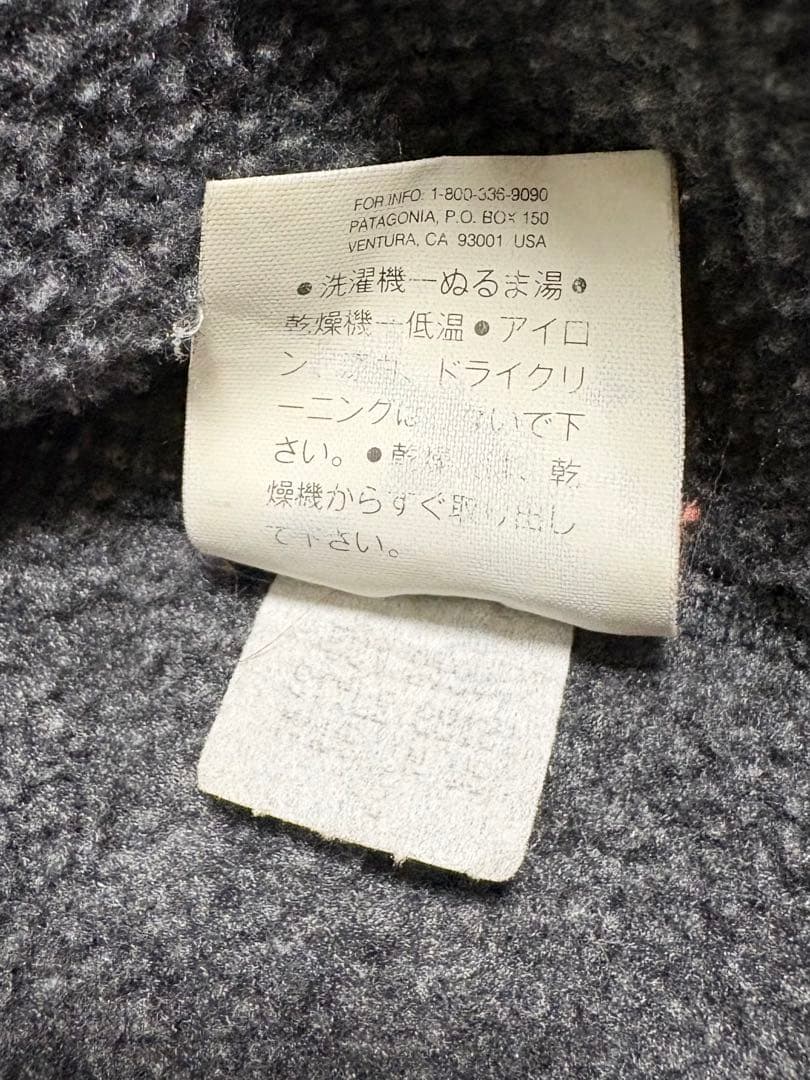 FOR INFO: 1-800-336-9090
PATAGONIA, P.O. BOX 150
VENTURA, CA 93001 USA
●洗濯機—ぬるま湯●
乾燥機—低温●アイロ
ン、、ドライクリ
ーニングはないで下
さい。●乾燥、乾
燥機からすぐ取り出し
て下さい。